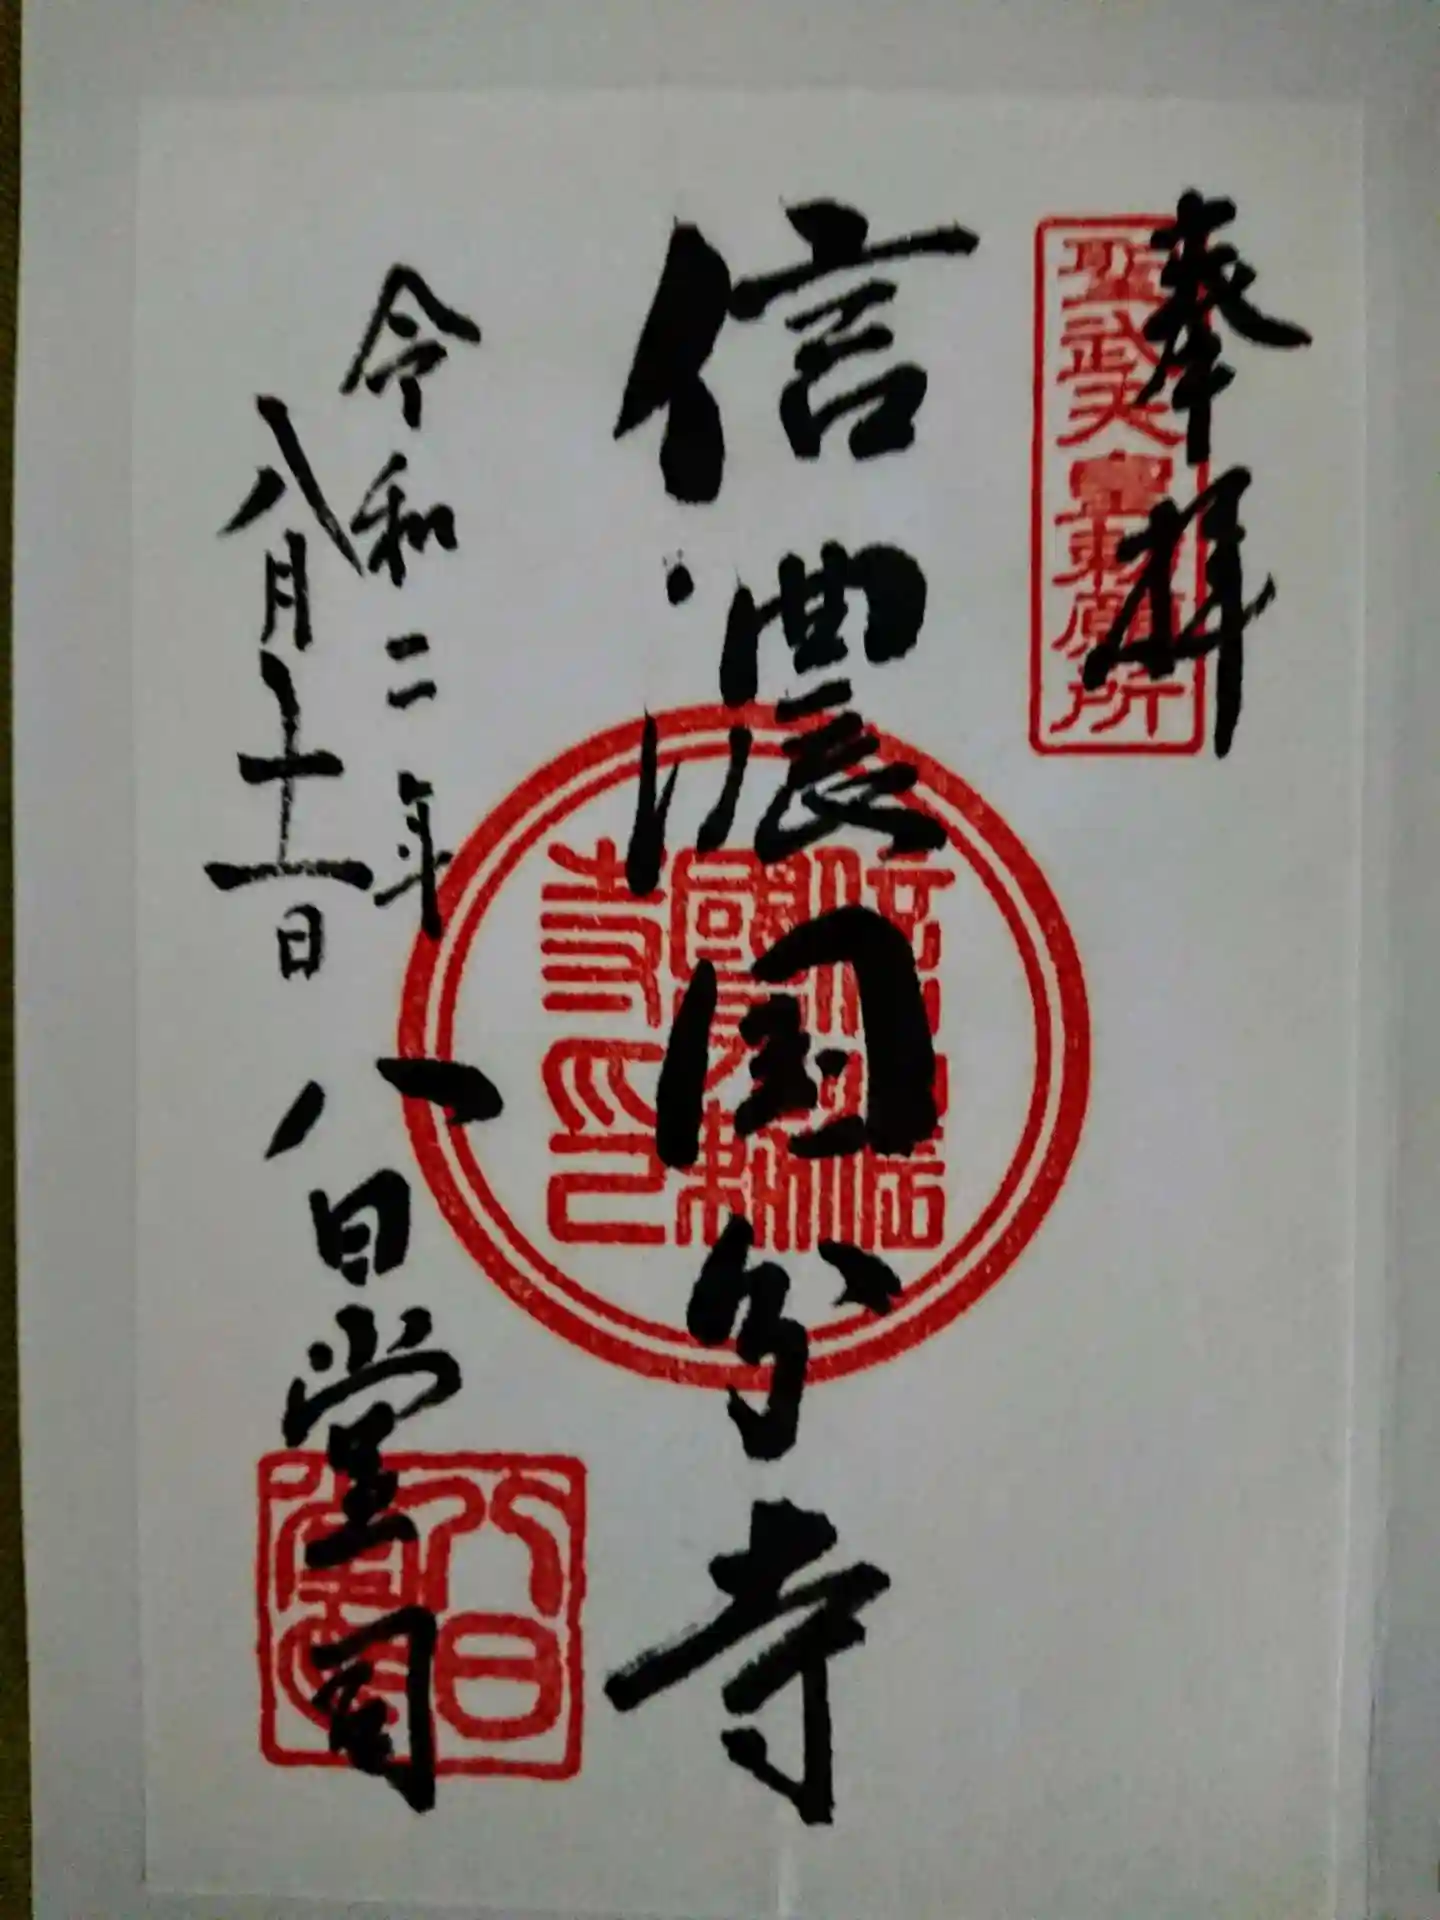 奉拝
聖武天皇勅願所
信濃国分寺
令和二年
八月十一日
八日堂司